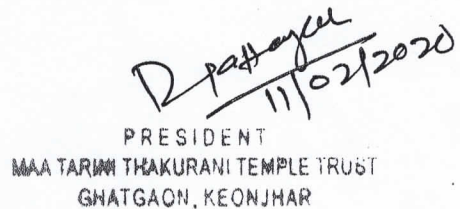 11/02/2020
PRESIDENT
MAA TARINI THAKURANI TEMPLE TRUST
GHATGAON, KEONJHAR